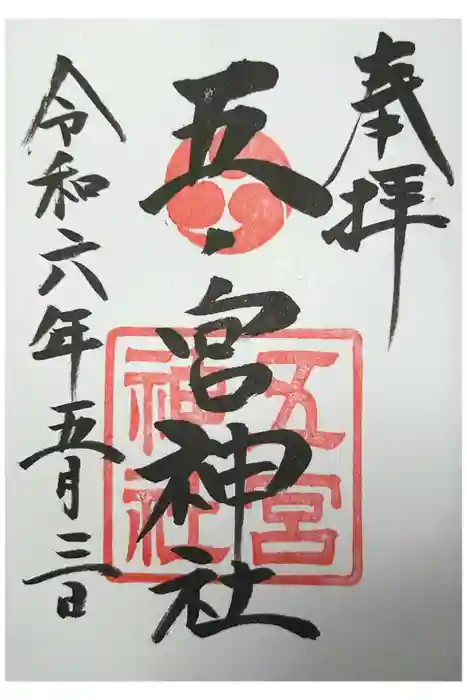 奉拝
五宮神社
五宮
神社
令和六年五月三日